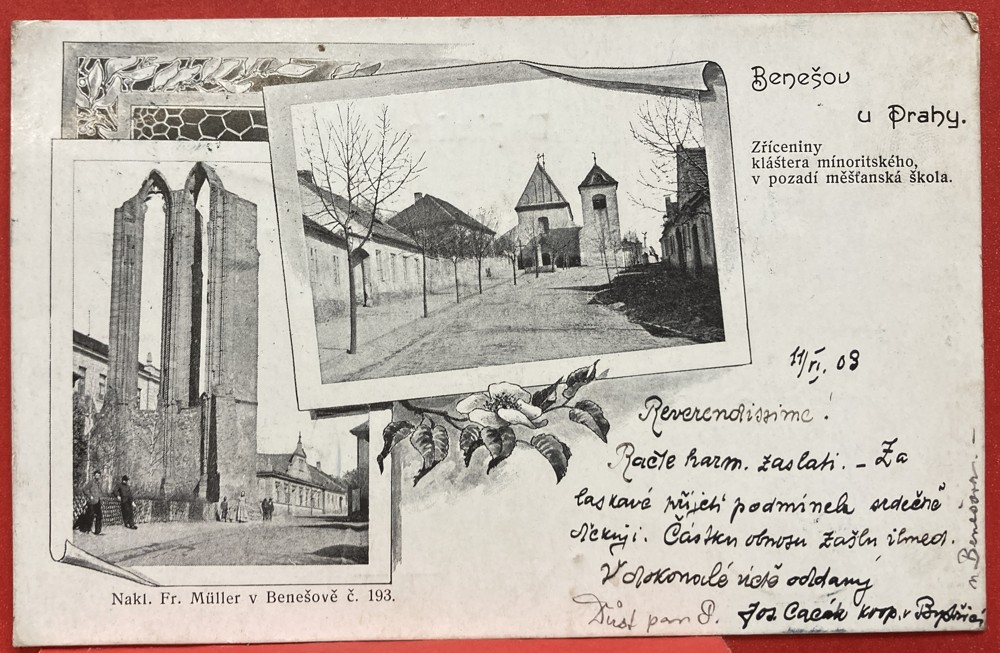 Benešov
u Prahy.
Zříceniny
kláštera minoritského,
v pozadí měšťanská škola.
11/VI. 03
Reverendissime!
Račte harm. zaslati. – Za
laskavé přijetí podmínek srdečně
děkuji. Částku obnosu zašlu ihned.
V dokonalé úctě oddaný
Jos. Cacák koop. v Bystřici
n. Benešova. –
Důst pan P.
Nakl. Fr. Müller v Benešově č. 193.